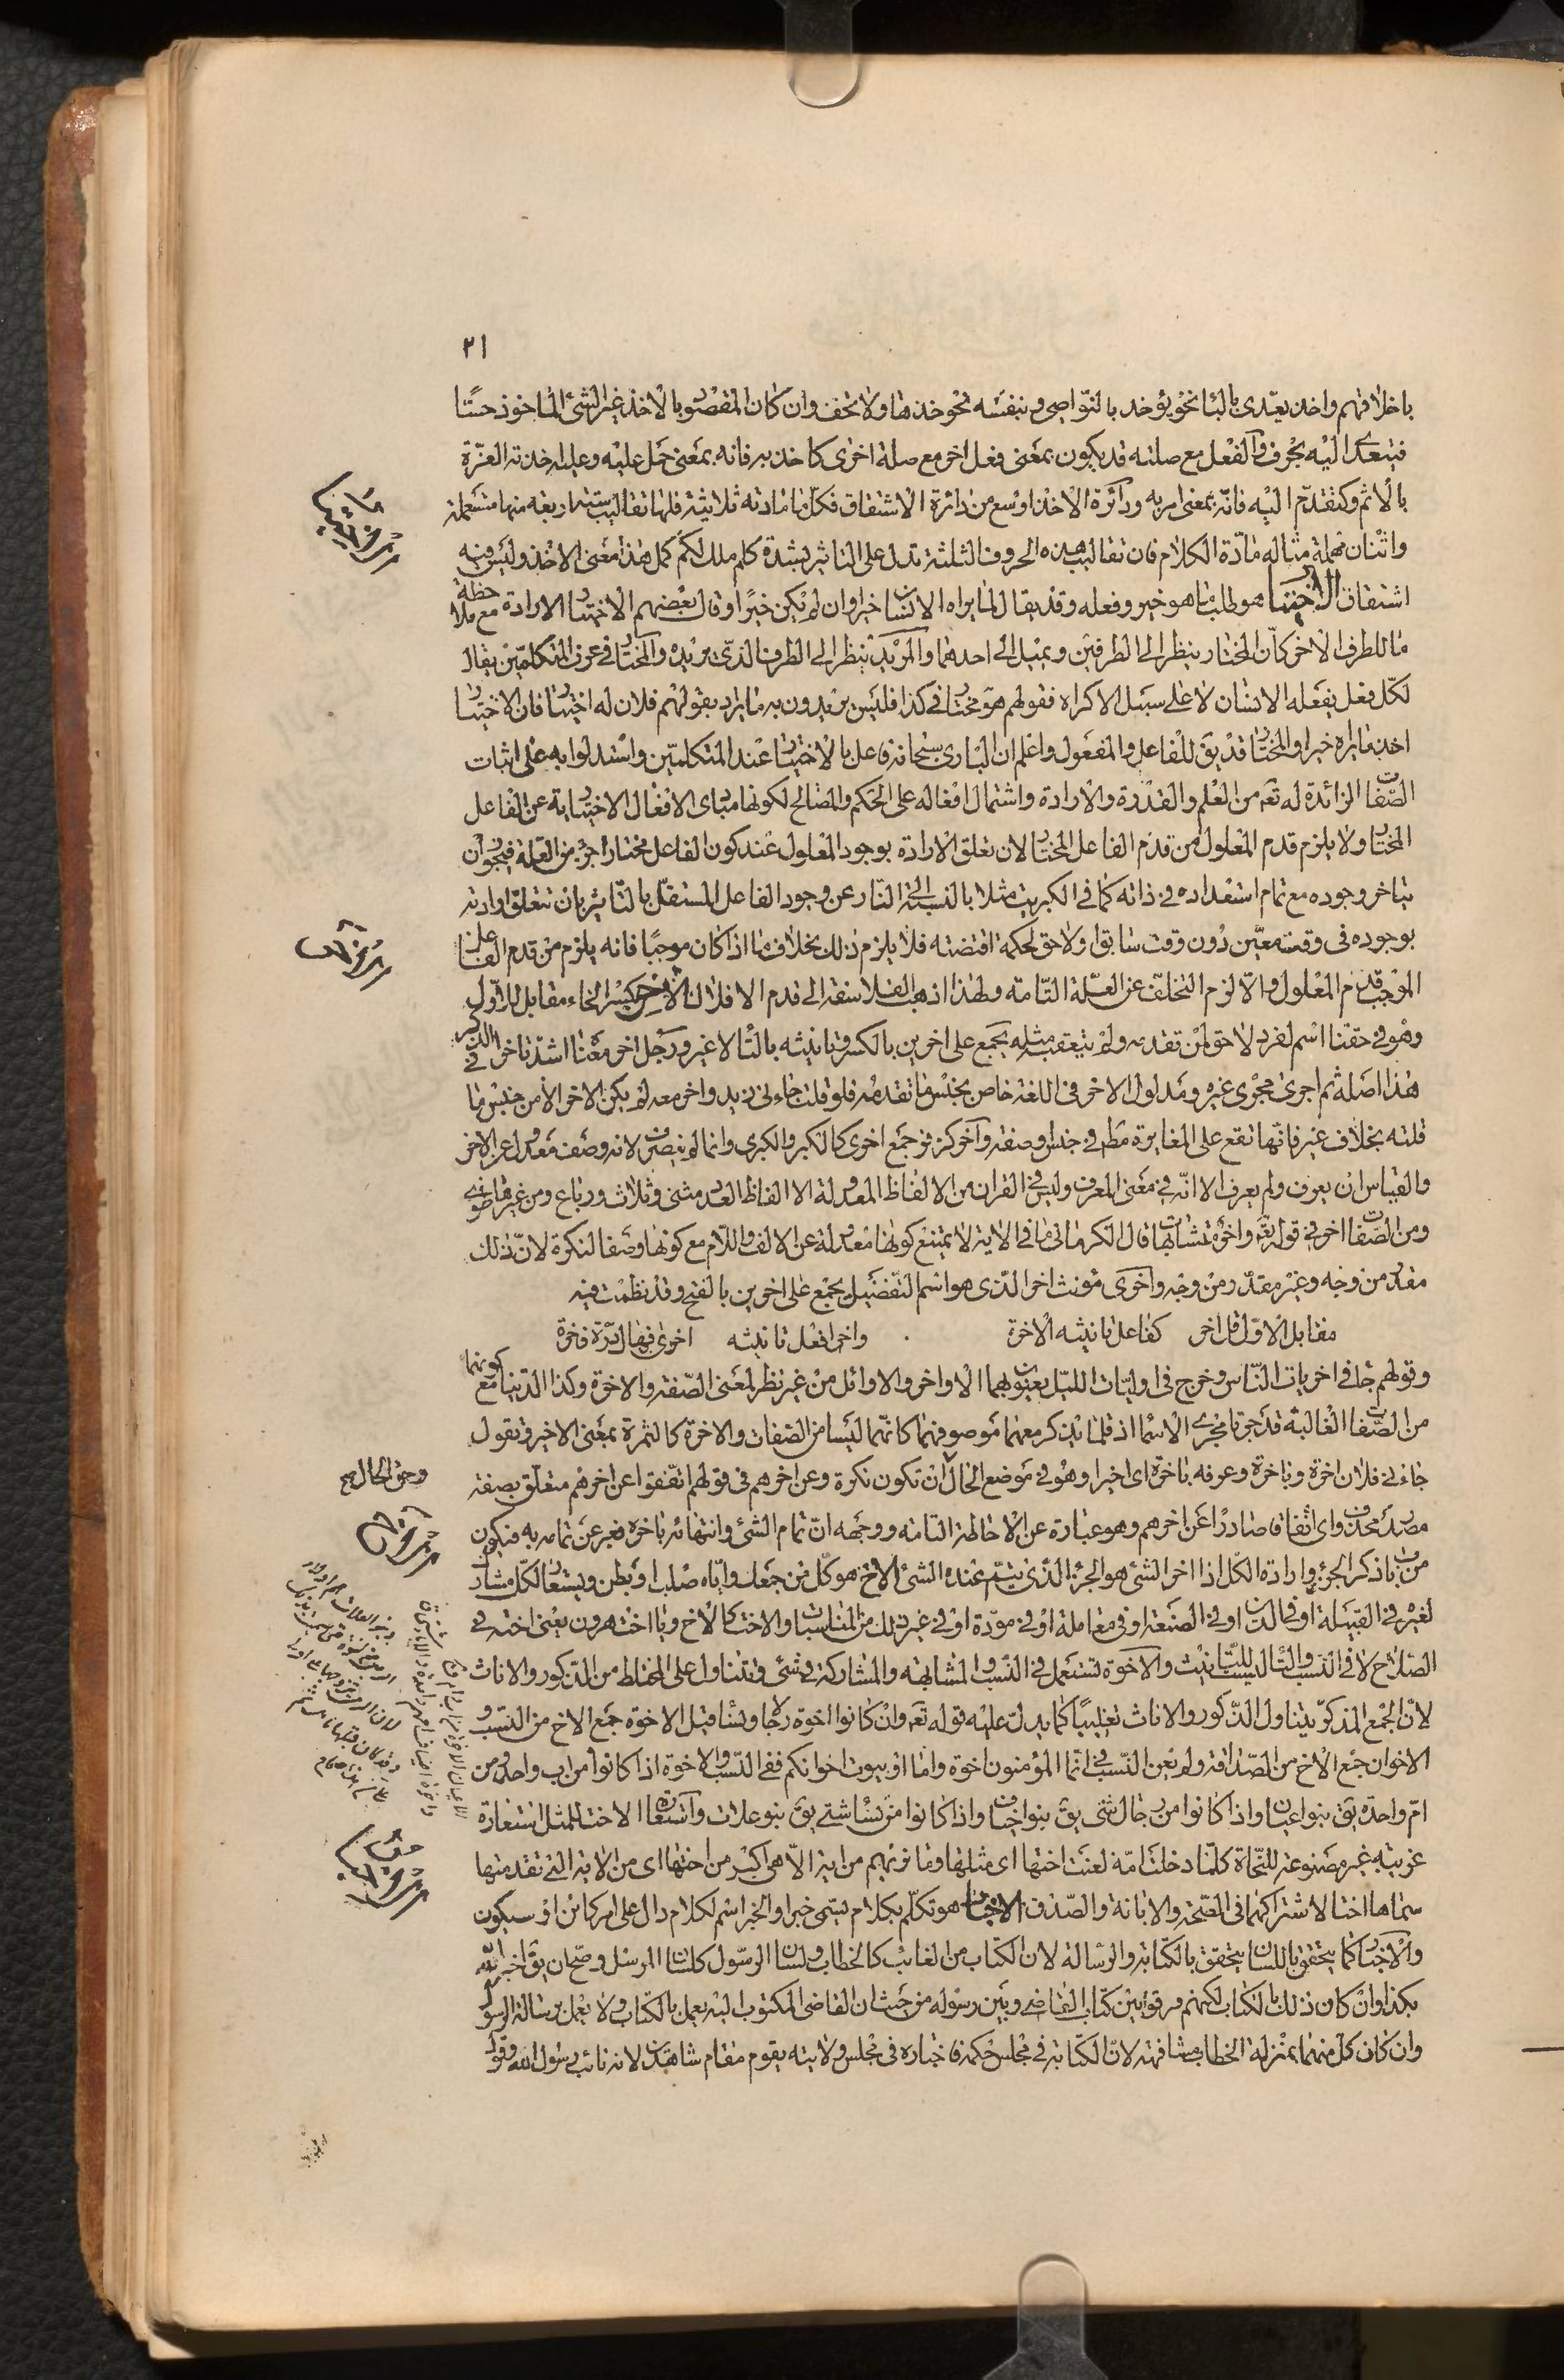 ٢١
باخلاقهم واخذ يعدى بالباء نحو يؤخذ بالنواصى وبنفسه نحو خذها ولا تخف وان كان المقصود بالاخذ غير الشئ الماخوذ حسّا
فيتعدى اليه بحرف والفعل مع صلته قد يكون بمعنى فعل اخر مع صلة اخرى كاخذ به فانه بمعنى حمل عليه وعليه اخذته العزة
بالاثم وكتقدم اليه فانه بمعنى امر به ودائرة الاخذ اوسع من دائرة الاشتقاق فكل ما مادته ثلاثية فلها تقاليب ستة اربعة منها مستعملة
واثنان مهملة مثاله مادّة الكلام فان تقاليب هذه الحروف الثلثة تدل على التاثير بشدة كلم ملك لكم كمل هذا معنى الاخذ وليس فيه
اشتقاق الاختيار هو طلب ما هو خير وفعله وقد يقال لما يراه الانسان خيرا وان لم يكن خيرًا وقال بعضهم الاختيار الارادة مع ملاحظة
ما للطرف الاخر كأن المختار ينظر الى الطرفين ويميل الى احدهما والمريد ينظر الى الطرف الذى يريده والمختار فى عرف المتكلمين يقال
لكل فعل يفعله الانسان لا على سبيل الاكراه فقولهم هو مختار فى كذا فليس يريدون به ما يراد بقولهم فلان له اختيار فان الاختيار
اخذ ما يراه خيرا والمختار قد يق للفاعل والمفعول واعلم ان البارى سبحانه فاعل بالاختيار عند المتكلمين واستدلوا به على اثبات
الصفات الزائدة له تع من العلم والقدرة والارادة واشتمال افعاله على الحكم والمصالح لكونها مبادى الافعال الاختيارية عن الفاعل
المختار ولا يلزم قدم المعلول من قدم الفاعل المختار لان تعلق الارادة بوجود المعلول عند كون الفاعل مختارا جزء من العلة فيجوز ان
يتاخر وجوده مع تمام استعداده فى ذاته كما فى الكبريت مثلا بالنسبة الى النار عن وجود الفاعل المستقل بالتاثير بان تتعلق ارادته
بوجوده فى وقت معين دون وقت سابق او لاحق لحكمة اقتضته فلا يلزم ذلك بخلاف ما اذا كان موجبًا فانه يلزم من قدم الفاعل
الموجب قدم المعلول والا لزم التخلف عن العلة التامة ولهذا ذهب الفلاسفة الى قدم الافلاك الآخر بكسر الخاء مقابل للاول
وهو فى حقنا اسم لفرد لاحق لمن تقدمه ولم يتعقبه مثله يجمع على اخرين بالكسر وتانيثه بالتا لا غير ورجل اخر معناه اشد تاخرا فى الذكر
هذا اصله ثم اجرى مجرى غيره ومدلول الاخر فى اللغة خاص بجنس ما تقدمه فلو قلت جاءنى زيد واخر معه لم يكن الاخر الا من جنس ما
قلته بخلاف غير فانها تقع على المغايرة مط فى جنس وصفة وآخر كزفر جمع اخرى كالكبر والكبرى وانما لم ينصرف لانه وصف معدول عن الاخر
والقياس ان يعرف ولم يعرف الا انه فى معنى المعرف وليس فى القران من الالفاظ المعدولة الا الفاظ العدد مثنى وثلاث ورباع ومن غيرها طوى
ومن الصفات اخر فى قوله تع واخر متشابهات قال الكرمانى ما فى الاية لا يمتنع كونها معدولة عن الالف واللام مع كونها وصفا لنكرة لان ذلك
مقدر من وجه وغير مقدر من وجه واخرى مؤنث اخر الذى هو اسم التفضيل يجمع على اخرين بالفتح وقد نظمت فيه
مقابل الاول قل اخر كفاعل تانيثه الاخرة واخر افعل تانيثه اخرى
وقولهم جاء فى اخريات الناس وخرج فى اوليات الليل يعنون بهما الاواخر والاوائل من غير نظر لمعنى الصفة والاخرة وكذا الدنيا مع كونهما
من الصفات الغالبة قد جرتا مجرى الاسما اذ قلما يذكر معهما موصوفهما كانهما ليسا من الصفات والاخرة كالثمرة بمعنى الاخير وتقول
جاءنى فلان اخرة وباخرة وعرفه باخرة اى اخيرا وهو فى موضع الحال ان تكون نكرة وعن اخرهم فى قولهم اتفقوا عن اخرهم متعلق بصفة
وحق الحال
مصدر محذوف اى اتفاقا صادرا عن اخرهم وهو عبارة عن الاحاطة التامة ووجهه ان تمام الشئ وانتهائه باخره فعبر عن تمامه به فيكون
من باب ذكر الجزء وارادة الكل اذا اخر الشئ هو الجزء الذى يتم عنده الشئ الاخ هو كل من جمعك واياه صلب او بطن ويستعار لكل مشارك
لغيره فى القبيلة او فى الدين او فى الصنعة او فى معاملة او فى مودة او فى غير ذلك من المناسبات والاخت كالاخ ويا اخت هرون يعنى اخته فى
الصلاح لا فى النسب والتا ليست للتانيث والاخوة تستعمل فى النسب والمشابهة والمشاركة فى شئ وتتناول على المختلط من الذكور والاناث
لان الجمع المذكر يتناول الذكور والاناث تغليبًا كما يدل عليه قوله تع وان كانوا اخوة رجالا ونسا قيل الاخوة جمع الاخ من النسب و
الاخوان جمع الاخ من الصداقة ولم يعن النسب فى انما المؤمنون اخوة واما او بيوت اخوانكم ففى النسب والاخوة اذا كانوا من اب واحد ومن
امّ واحدة يق بنوا عيان واذا كانوا من رجال شتى يق بنوا خياف واذا كانوا من نسا شتى يق بنو علات واستعارة الاخت للمثل استعارة
غريبة غير مصنوعة للنحاة كلما دخلت امّة لعنت اختها اى مثلها وما نريهم من اية الا هى اكبر من اختها اى من الاية التى تقدمتها
سماها اختا لاشتراكهما فى الصحة والابانة والصدق الاخبار هو تكلم بكلام يسمى خبرا والخبر اسم لكلام دال على امر كائن او سيكون
والاخبار كما يتحقق باللسان يتحقق بالكتابة والرسالة لان الكتاب من الغائب كالخطاب ولسان الرسول كلسان المرسل وصح ان يق اخبر الله
بكذا وان كان ذلك بالكتاب لكنهم فرقوا بين كتاب القاضى وبين رسوله من حيث ان القاضى المكتوب اليه يعمل بالكتاب ولا يعمل برسالة الرسول
وان كان كل منهما بمنزلة الخطاب مشافهة لان الكتابة فى مجلس حكمه فاخباره فى مجلس ولايته يقوم مقام شاهدين لانه نائب رسول الله وقول